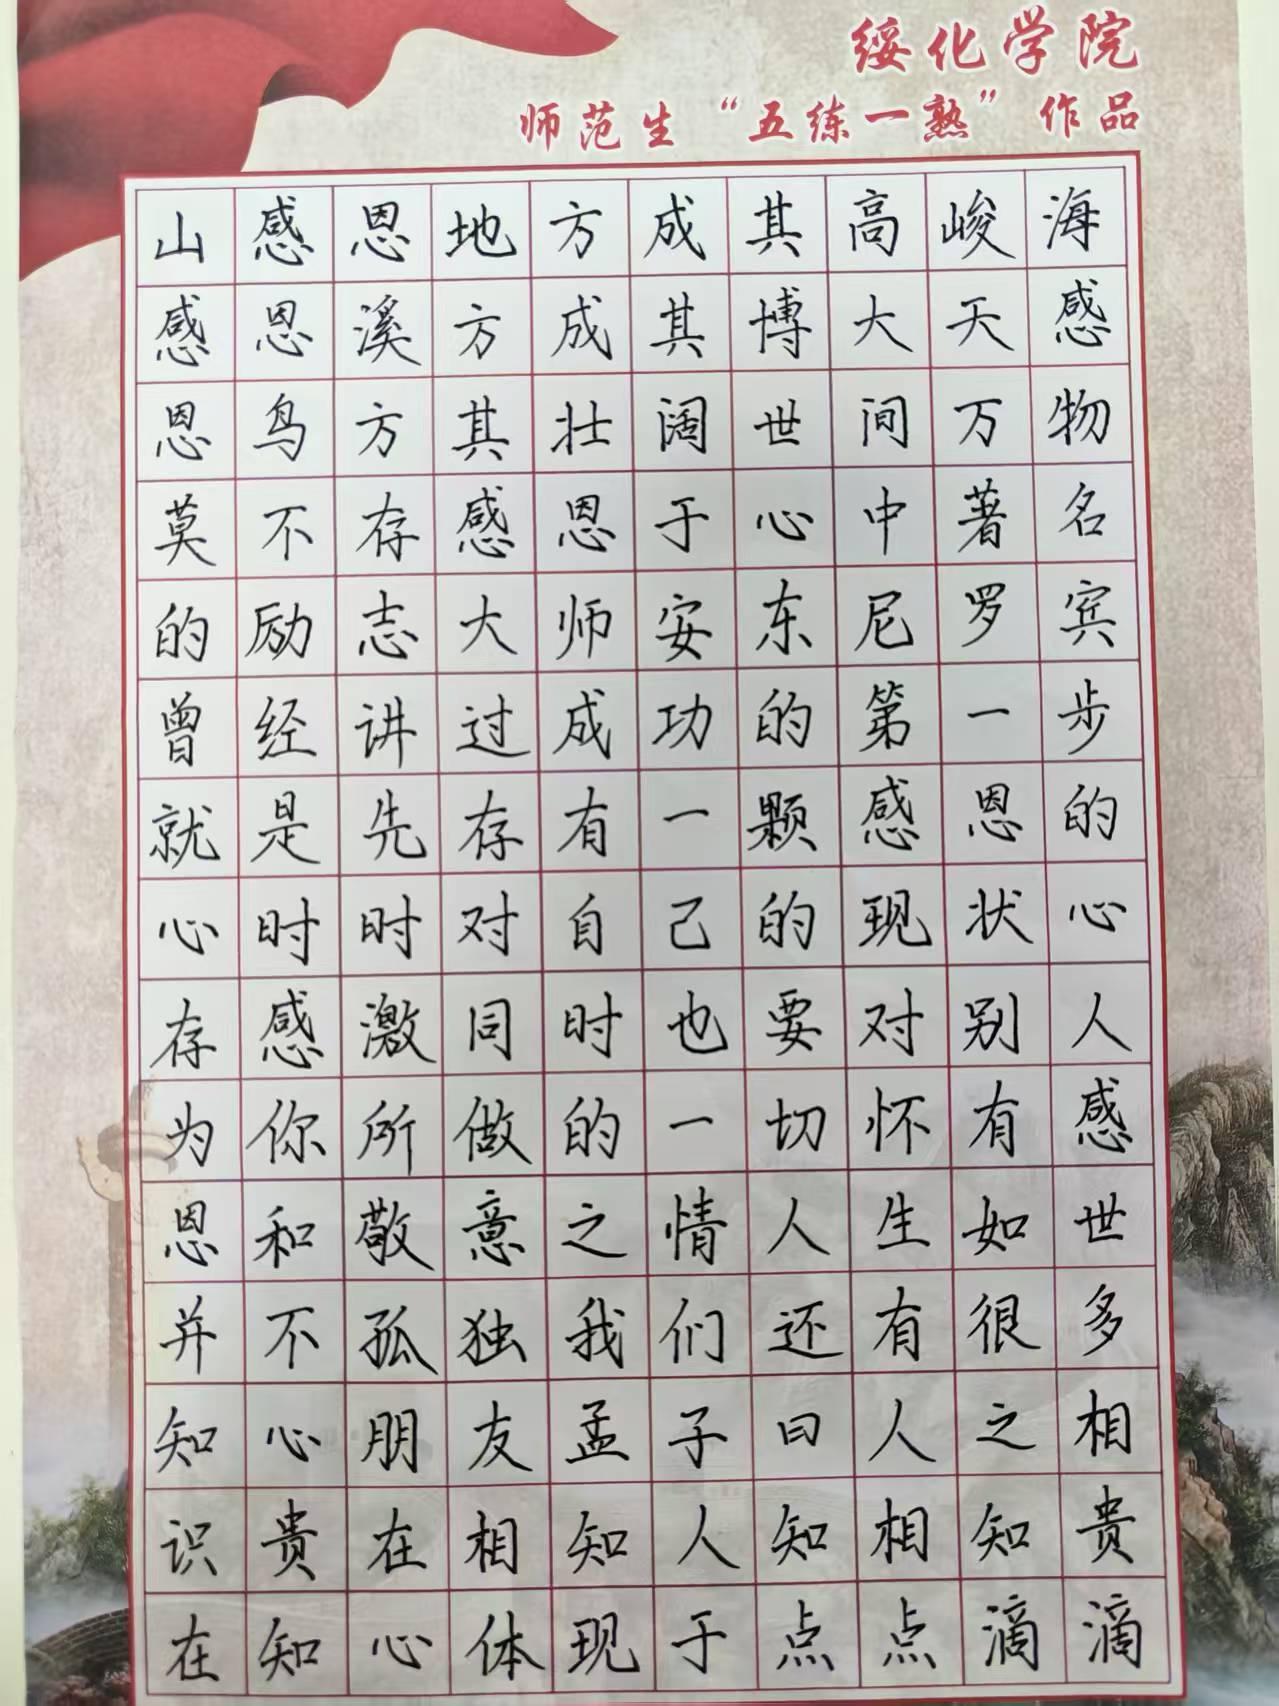 绥化学院
师范生“五练一熟”作品
山感恩地方成其高峻海
感恩溪方成其博大天感
恩鸟方其壮阔世间万物
莫不存感恩于心中著名
的励志大师安东尼罗宾
曾经讲过成功的第一步
就是先存有一颗感恩的
心时时对自己的现状心
存感激同时也要对别人
为你所做的一切怀有感
恩和敬意之情人生如世
并不孤独我们还有很多
知心朋友孟子曰人之相
识贵在相知人知相知贵
在知心体现于点点滴滴